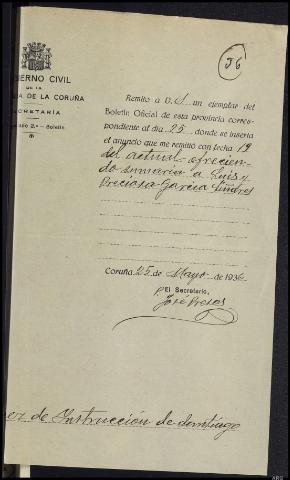 56
BIERNO CIVIL
DE LA
IA DE LA CORUÑA
SECRETARÍA
2.º - Boletín
Remito a U.S. un ejemplar del
Boletín Oficial de esta provincia corres-
pondiente al día 25 donde se inserta
el anuncio que me remitió con fecha 19
del actual ofrecien-
do sumario a Luis y
Preciosa García
Coruña 25 de Mayo de 1936
P. El Secretario,
José
ez de Instrucción de Santiago